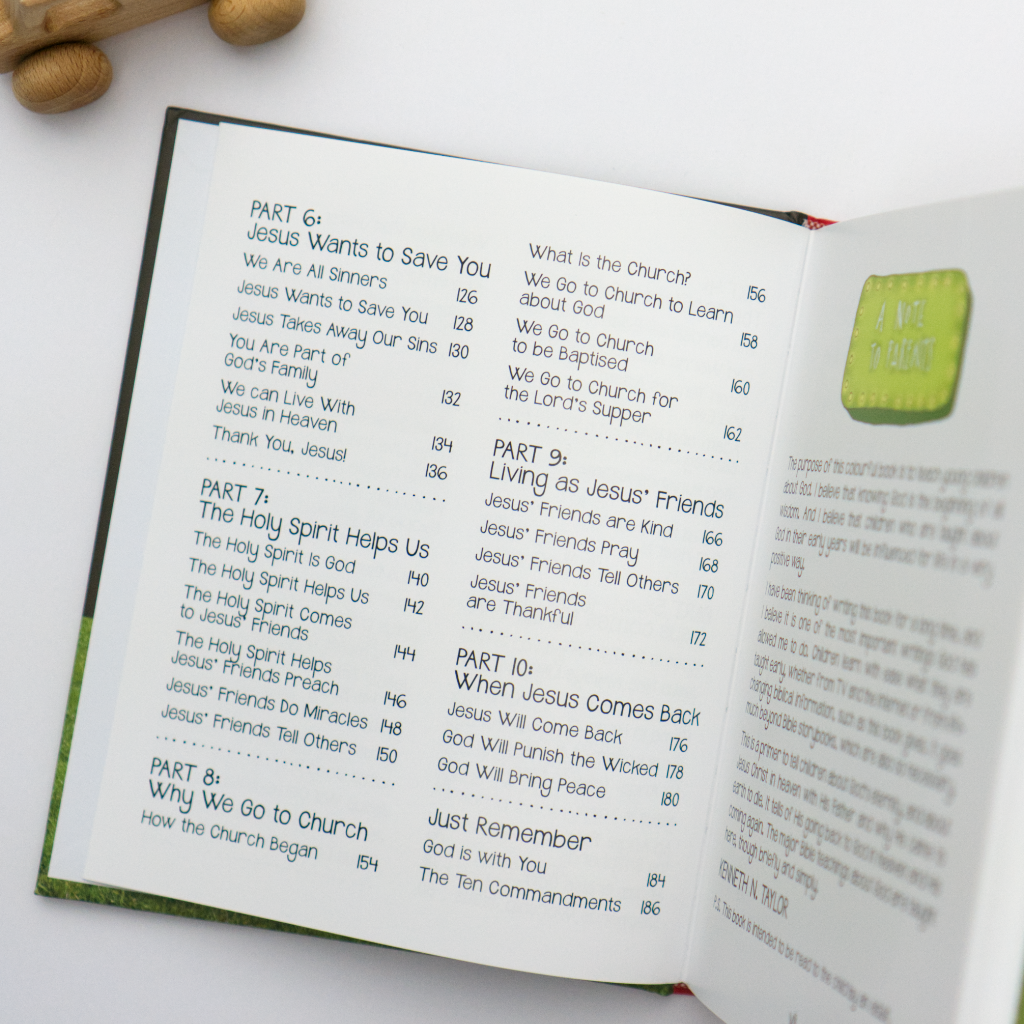 PART 6:
Jesus Wants to Save You
We Are All Sinners 126
Jesus Wants to Save You 128
Jesus Takes Away Our Sins 130
You Are Part of
God's Family 132
We can Live With
Jesus in Heaven 134
Thank You, Jesus! 136
PART 7:
The Holy Spirit Helps Us
The Holy Spirit Is God 140
The Holy Spirit Helps Us 142
The Holy Spirit Comes
to Jesus' Friends 144
The Holy Spirit Helps
Jesus' Friends Preach 146
Jesus' Friends Do Miracles 148
Jesus' Friends Tell Others 150
PART 8:
Why We Go to Church
How the Church Began 154
What Is the Church? 156
We Go to Church to Learn
about God 158
We Go to Church
to be Baptised 160
We Go to Church for
the Lord's Supper 162
PART 9:
Living as Jesus' Friends
Jesus' Friends are Kind 166
Jesus' Friends Pray 168
Jesus' Friends Tell Others 170
Jesus' Friends
are Thankful 172
PART 10:
When Jesus Comes Back
Jesus Will Come Back 176
God Will Punish the Wicked 178
God Will Bring Peace 180
Just Remember
God is with You 184
The Ten Commandments 186
A NOTE
to PARENTS
The purpose of this colourful book is to teach young
about God. I believe that knowing God is the beginning of all
wisdom. And I believe that children who are taught about
God in their early years will be influenced for life in a very
positive way.
I have been thinking of writing this book for a long time, and
I believe it is one of the most important writings God has
allowed me to do. Children learn with ease what they are
taught early, whether from TV and the internet or
changing biblical information, such as this book gives. It goes
much beyond Bible storybooks, which are also so necessary.
This is a primer to tell children about God's eternity, and about
Jesus Christ in heaven with His Father and why He came to
earth to die. It tells of His going back to God in heaven and His
coming again. The major Bible teachings about God are taught
here, though briefly and simply.
KENNETH N. TAYLOR
P.S. This book is intended to be read to the child by an adult